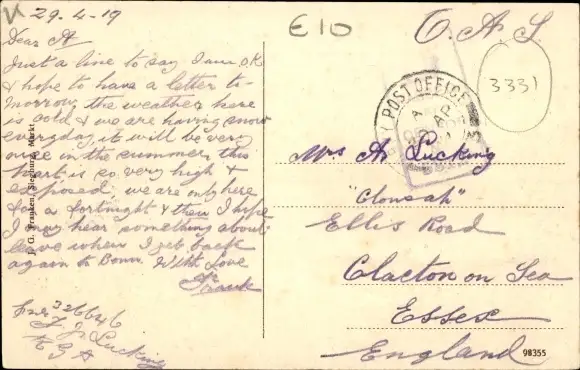 29.4-19
Dear A
Just a line to say I am O.K
& hope to have a letter to-
morrow, the weather here
is cold & we are having snow
everyday, it will be very
nice in the summer, this
part is so very high &
exposed, we are only here
for a fortnight & then I hope
I may hear something about
leave when I get back
again to Bonn. With Love
Frank
326646
F J Lucking
R G A
J. G. Franken, Siegburg, Markt.
E10
O.A.S.
3331
POST OFFICE
AP
Mrs A Lucking
"Clonsah"
Ellis Road
Clacton on Sea
Essex
England
98355